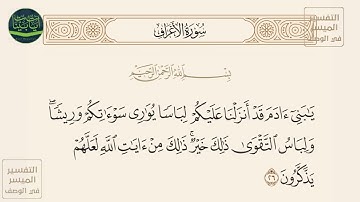 سُورَةُ الأَعْرَافِ
بِسْمِ اللَّهِ الرَّحْمَٰنِ الرَّحِيمِ
يَـٰبَنِىٓ ءَادَمَ قَدْ أَنزَلْنَا عَلَيْكُمْ لِبَاسًا يُوَٰرِى سَوْءَٰتِكُمْ وَرِيشًا ۖ
وَلِبَاسُ ٱلتَّقْوَىٰ ذَٰلِكَ خَيْرٌ ۚ ذَٰلِكَ مِنْ ءَايَـٰتِ ٱللَّهِ لَعَلَّهُمْ
يَذَّكَّرُونَ ٢٦
التفسير
الميسر
في الوصف
التفسير
الميسر
في الوصف